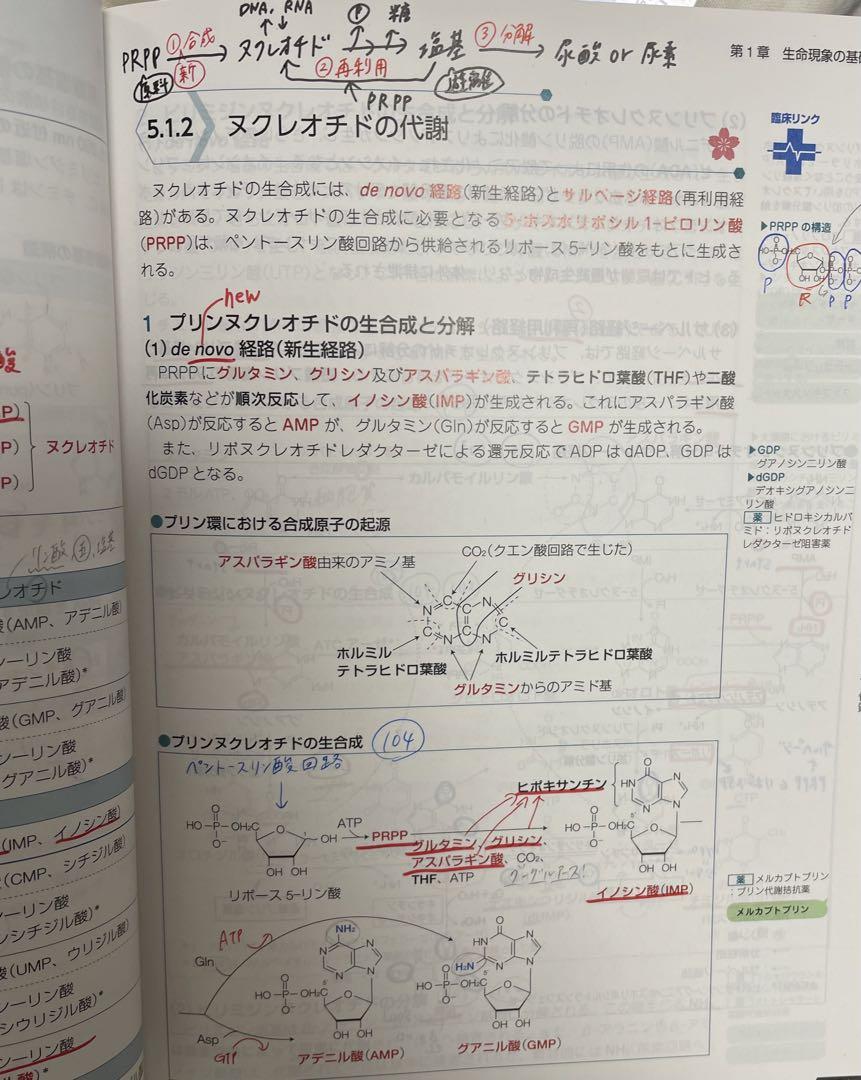 DNA, RNA
PRPP ①合成 新 ヌクレオチド Ⓟ 糖 塩基 ③分解 尿酸 or 尿素
原料 ②再利用 遊離塩基
PRPP
第1章 生命現象の基礎
5.1.2 ヌクレオチドの代謝
臨床リンク
ヌクレオチドの生合成には、de novo 経路(新生経路)とサルベージ経路(再利用経
路)がある。ヌクレオチドの生合成に必要となる5-ホスホリボシル1-ピロリン酸
(PRPP)は、ペントースリン酸回路から供給されるリボース 5-リン酸をもとに生成さ
れる。
▶PRPP の構造
P R P P
new
1 プリンヌクレオチドの生合成と分解
(1) de novo 経路(新生経路)
PRPP にグルタミン、グリシン及びアスパラギン酸、テトラヒドロ葉酸(THF)や二酸
化炭素などが順次反応して、イノシン酸(IMP)が生成される。これにアスパラギン酸
(Asp)が反応すると AMP が、グルタミン(Gln)が反応すると GMP が生成される。
また、リボヌクレオチドレダクターゼによる還元反応で ADP は dADP、GDP は
dGDP となる。
▶GDP
グアノシン二リン酸
▶dGDP
デオキシグアノシン二
リン酸
薬 ヒドロキシカルバ
ミド：リボヌクレオチド
レダクターゼ阻害薬
●プリン環における合成原子の起源
アスパラギン酸由来のアミノ基
CO₂(クエン酸回路で生じた)
グリシン
N C C N C C N N C
ホルミル
テトラヒドロ葉酸
ホルミルテトラヒドロ葉酸
グルタミンからのアミド基
●プリンヌクレオチドの生合成 104
ペントースリン酸回路
HO-P-OH₂C O OH
O O⁻ OH OH
リボース 5-リン酸
ATP
PRPP
グルタミン、グリシン、
アスパラギン酸、CO₂、
THF、ATP
ヒポキサンチン
O HN N N N
HO-P-OH₂C O
O O⁻ 5' OH OH
イノシン酸(IMP)
薬 メルカプトプリン
：プリン代謝拮抗薬
メルカプトプリン
ATP
Gln
Asp
GTP
NH₂ N N N N
HO-P-OH₂C O
O O⁻ 5' OH OH
アデニル酸(AMP)
O HN H₂N N N N
HO-P-OH₂C O
O O⁻ 5' OH OH
グアニル酸(GMP)
酸
P)
P)
P)
ヌクレオチド
リン酸 塩基
レオチド
(AMP、アデニル酸)
ーリン酸
アデニル酸)*
(GMP、グアニル酸)
ーリン酸
グアニル酸)*
(IMP、イノシン酸)
(CMP、シチジル酸)
ーリン酸
シチジル酸)*
(UMP、ウリジル酸)
ーリン酸
シウリジル酸)*
ーリン酸